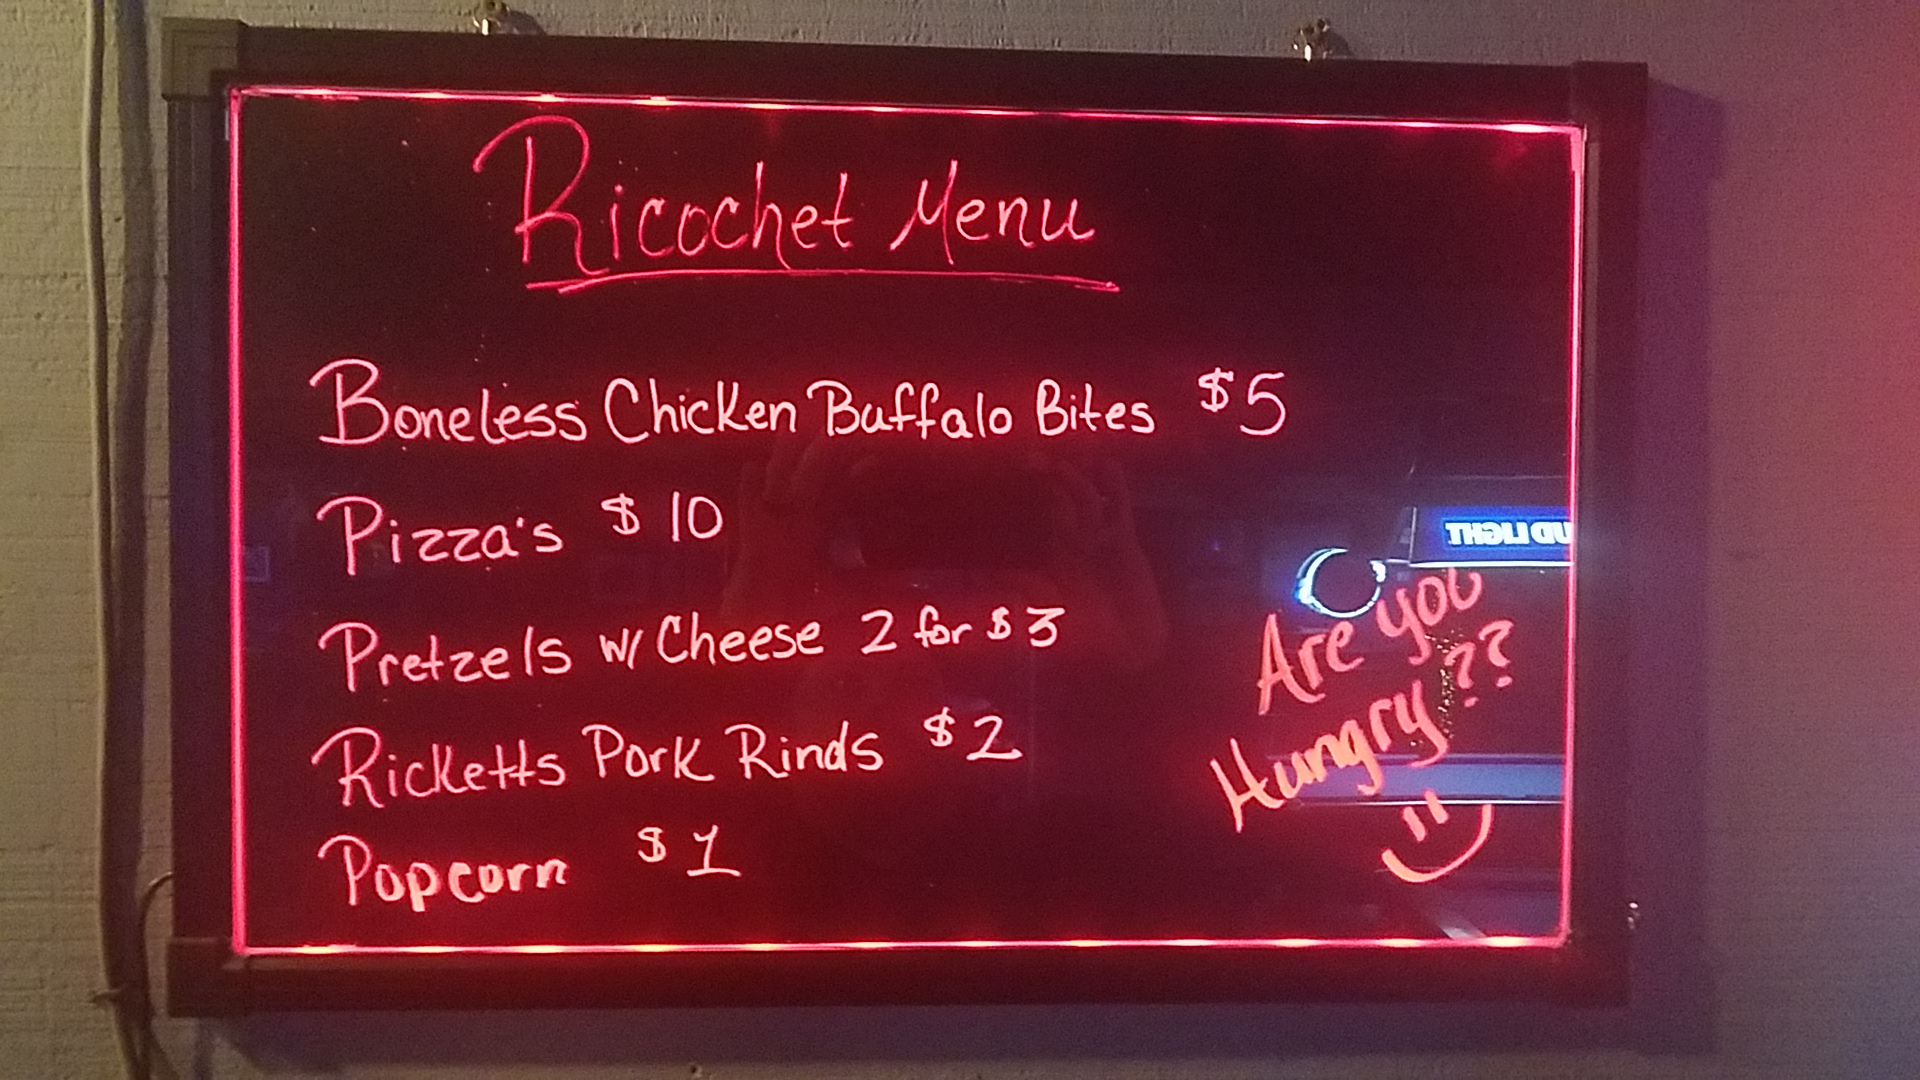 Ricochet Menu
Boneless Chicken Buffalo Bites $5
Pizza's $10
Pretzels w/ Cheese 2 for $3
Ricketts Pork Rinds $2
Popcorn $1
UD LIGHT
Are you
Hungry??